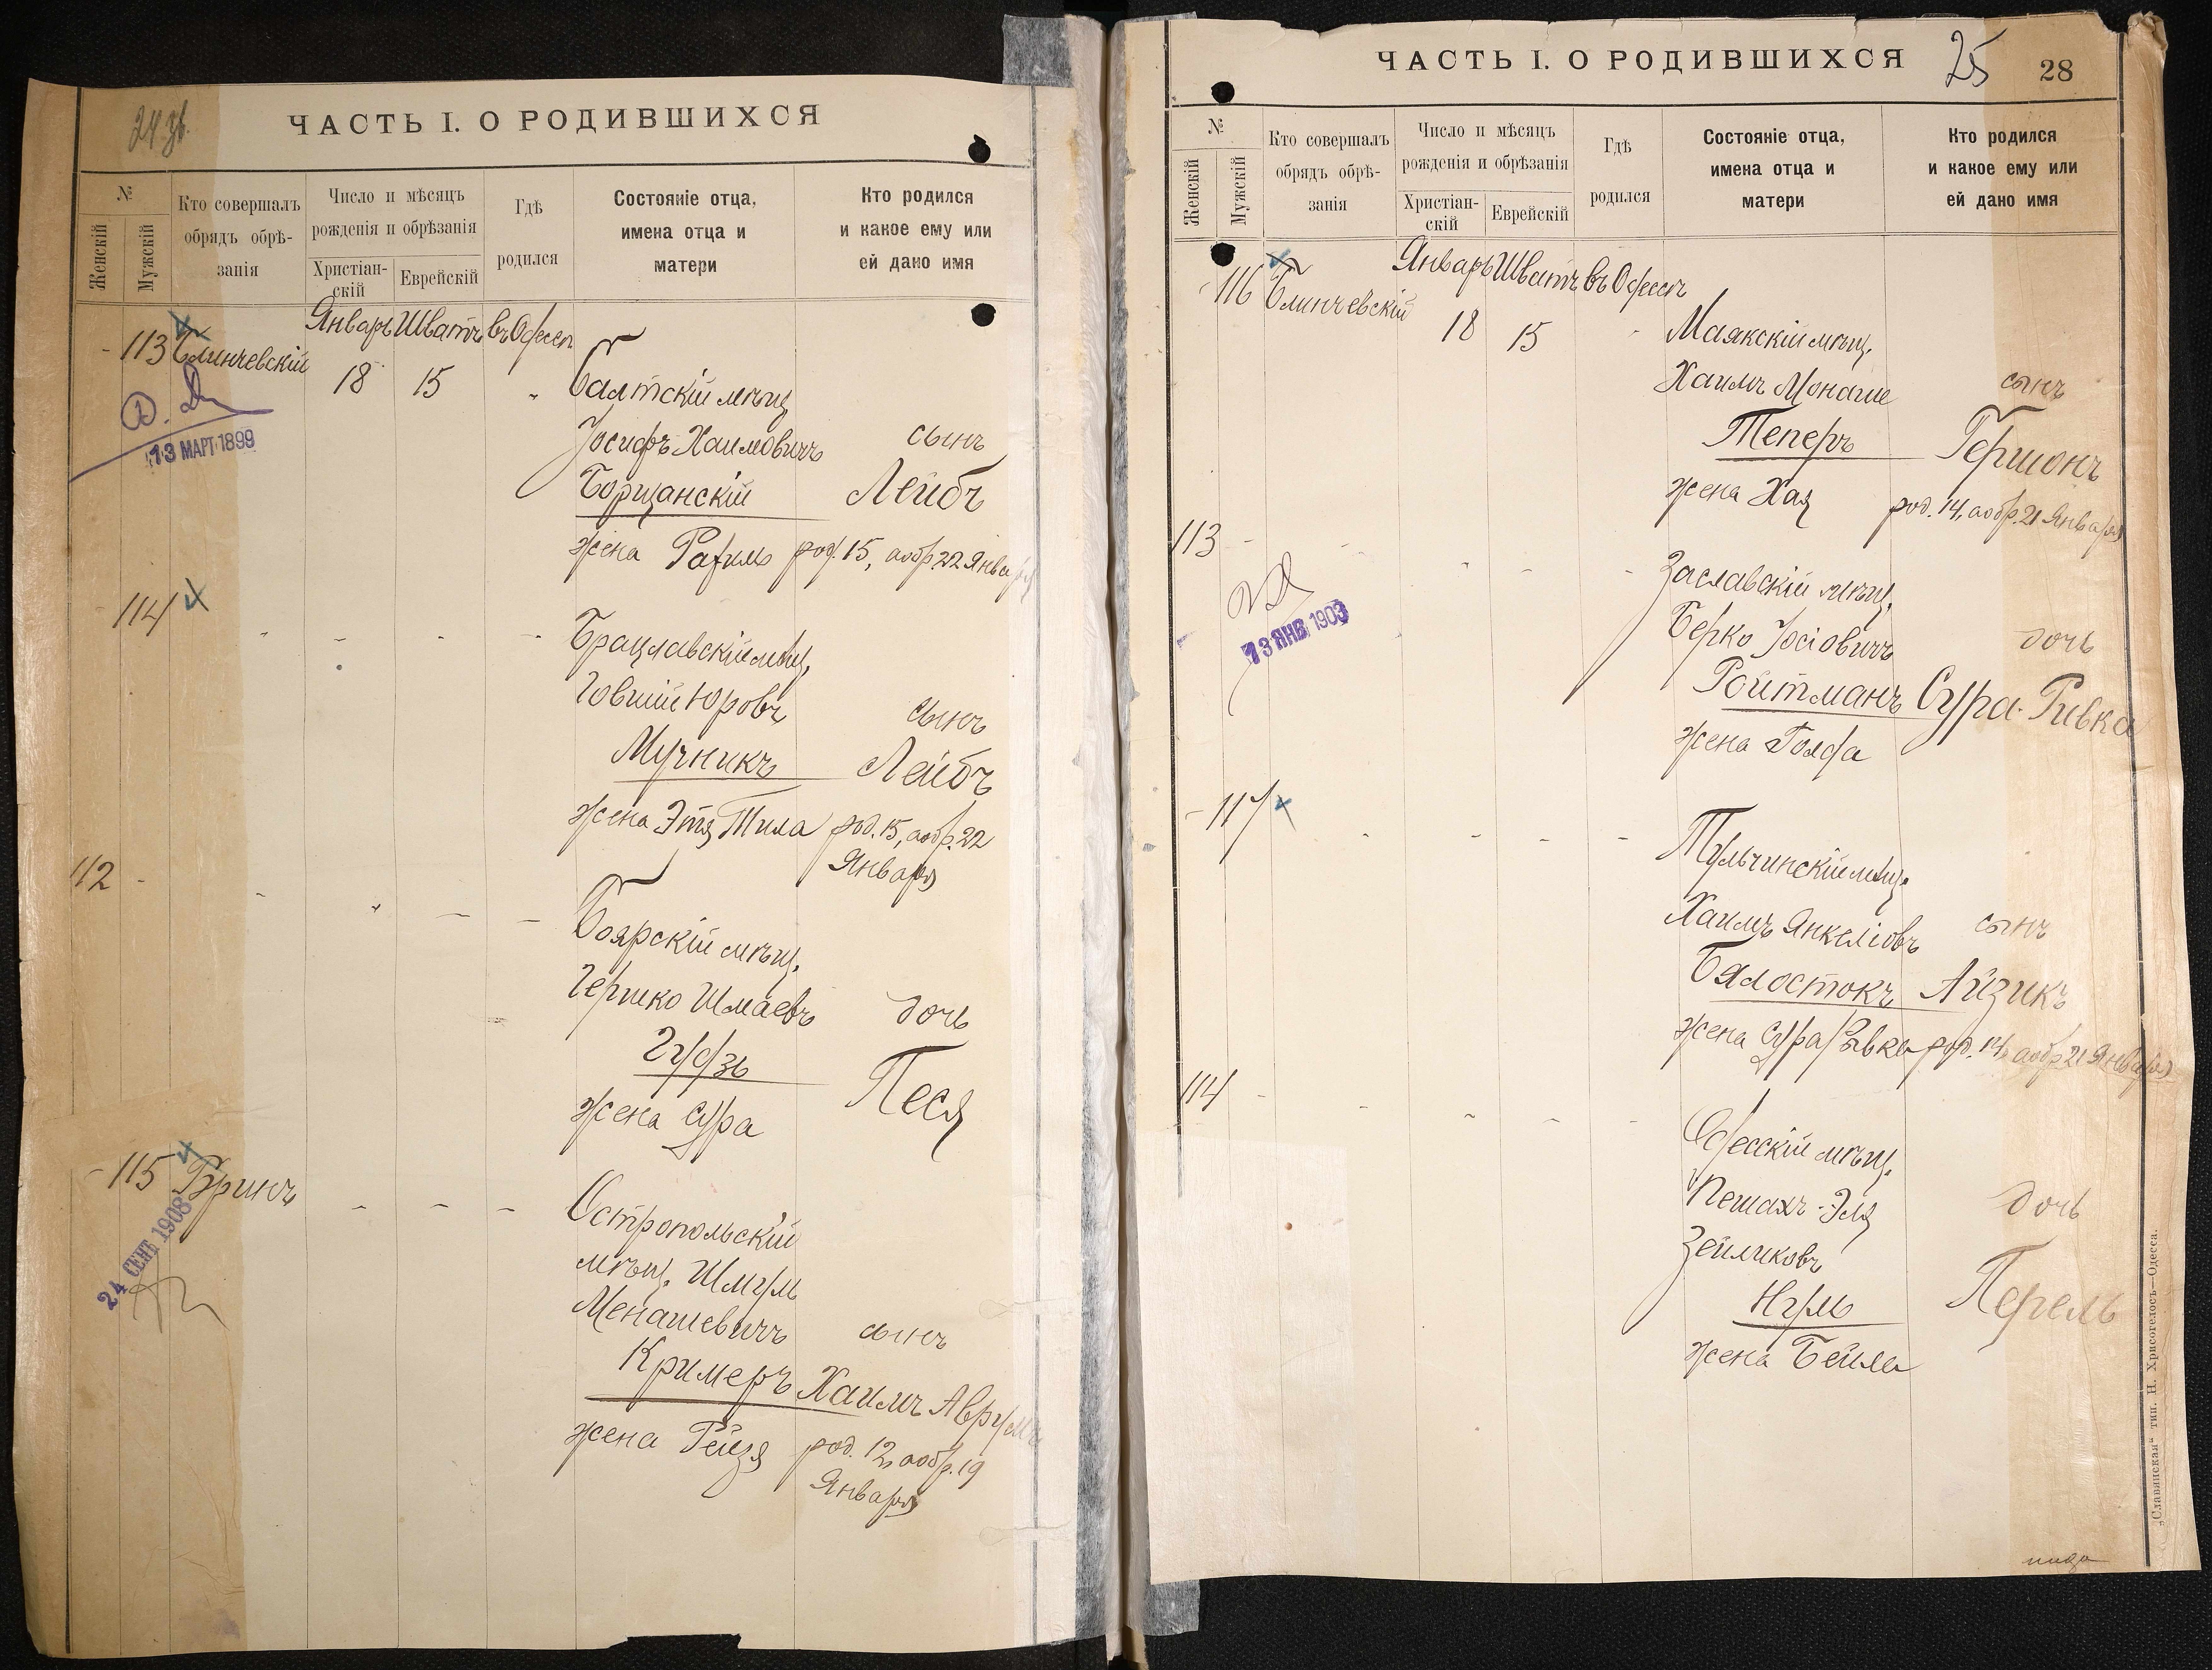 ЧАСТЬ I. О РОДИВШИХСЯ
№
Женскій
Мужскій
Кто совершалъ
обрядъ обрѣ-
занія
Число и мѣсяцъ
рожденія и обрѣзанія
Христіан-
скій
Еврейскій
Гдѣ
родился
Состояніе отца,
имена отца и
матери
Кто родился
и какое ему или
ей дано имя
Январь Шватъ въ Одессѣ
113 Блинчевскій
18 15
Балтскій мѣщ.
Іосифъ Хаимовичъ сынъ
Борщанскій Лейбъ
жена Рахиль род. 15, а обр. 22 Января
13 МАРТ 1899
114
Брацлавскій мѣщ.
Говшій Юровъ сынъ
Мучникъ Лейбъ
жена Этя Тила род. 15, а обр. 22
Января
112
Боярскій мѣщ.
Гершко Шмаевъ дочь
жена Сура Песя
115 Гринъ
24 СЕНТ 1908
Остропольскій
мѣщ. Шмуль
Менашевичъ сынъ
Кримеръ Хаимъ Аврумъ
жена Рейзя род. 12, а обр. 19
Января
ЧАСТЬ I. О РОДИВШИХСЯ 25 28
№
Женскій
Мужскій
Кто совершалъ
обрядъ обрѣ-
занія
Число и мѣсяцъ
рожденія и обрѣзанія
Христіан-
скій
Еврейскій
Гдѣ
родился
Состояніе отца,
имена отца и
матери
Кто родился
и какое ему или
ей дано имя
Январь Шватъ въ Одессѣ
116 Блинчевскій
18 15
Маякскій мѣщ.
Хаимъ Монаше сынъ
Теперъ Гершонъ
жена Хая род. 14, а обр. 21 Января
113
Заславскій мѣщ.
Берко Іосіовичъ дочь
Ройтманъ Сура-Ривка
жена Голда
13 ЯНВ 1903
117
Тульчинскій мѣщ.
Хаимъ Янкеліовъ сынъ
Бялостокъ Айзикъ
жена Сура Ривка род. 14, а обр. 21 Января
114
Одесскій мѣщ.
Пешахъ-Эля дочь
Зейликовъ
Нуль Перель
жена Бейла
„Славянская“ тип. Н. Хрисогелосъ—Одесса.